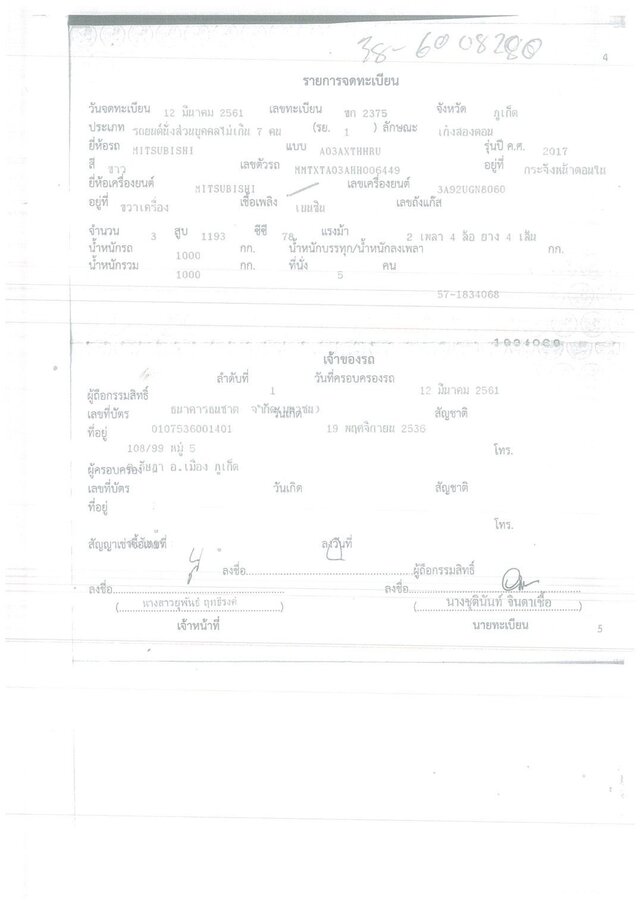 38-6008280
4
รายการจดทะเบียน
วันจดทะเบียน 12 มีนาคม 2561 เลขทะเบียน ขก 2375 จังหวัด ภูเก็ต
ประเภท รถยนต์นั่งส่วนบุคคลไม่เกิน 7 คน (รย. 1 ) ลักษณะ เก๋งสองตอน
ยี่ห้อรถ MITSUBISHI แบบ A03AXTHHRU รุ่นปี ค.ศ. 2017
สี ขาว เลขตัวรถ MMTXTA03AHH006449 อยู่ที่ กระจังหน้าตอนใน
ยี่ห้อเครื่องยนต์ MITSUBISHI เลขเครื่องยนต์ 3A92UGN8060
อยู่ที่ ขวาเครื่อง เชื้อเพลิง เบนซิน เลขถังแก๊ส
จำนวน 3 สูบ 1193 ซีซี 78 แรงม้า 2 เพลา 4 ล้อ ยาง 4 เส้น
น้ำหนักรถ 1000 กก. น้ำหนักบรรทุก/น้ำหนักลงเพลา กก.
น้ำหนักรวม 1000 กก. ที่นั่ง 5 คน
57-1834068
เจ้าของรถ
ลำดับที่ 1 วันที่ครอบครองรถ 12 มีนาคม 2561
ผู้ถือกรรมสิทธิ์ ธนาคารธนชาต จำกัด(มหาชน)
เลขที่บัตร 0107536001401 วันเกิด 19 พฤศจิกายน 2536 สัญชาติ
ที่อยู่ 108/99 หมู่ 5 โทร.
ต.รัษฎา อ.เมือง ภูเก็ต
ผู้ครอบครอง
เลขที่บัตร วันเกิด สัญชาติ
ที่อยู่
โทร.
สัญญาเช่าซื้อเลขที่ ลงวันที่
ลงชื่อ ผู้ถือกรรมสิทธิ์
ลงชื่อ ลงชื่อ
(นางสาวยุพันธ์ ฤทธิรงค์) (นางชุตินันท์ จินดาเชื้อ)
เจ้าหน้าที่ นายทะเบียน
5